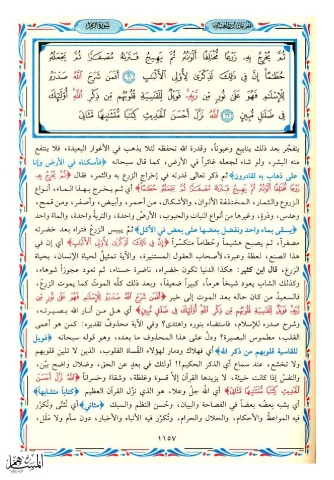 سورة الزمر
ثُمَّ يُخْرِجُ بِهِ زَرْعًا مُّخْتَلِفًا أَلْوَانُهُ ثُمَّ يَهِيجُ فَتَرَاهُ مُصْفَرًّا ثُمَّ يَجْعَلُهُ
حُطَامًا إِنَّ فِي ذَلِكَ لَذِكْرَى لِأُولِي الْأَلْبَابِ ۝ أَفَمَن شَرَحَ اللَّهُ صَدْرَهُ
لِلْإِسْلَامِ فَهُوَ عَلَى نُورٍ مِّن رَّبِّهِ فَوَيْلٌ لِّلْقَاسِيَةِ قُلُوبُهُم مِّن ذِكْرِ اللَّهِ أُوْلَئِكَ
فِي ضَلَالٍ مُّبِينٍ ۝ اللَّهُ نَزَّلَ أَحْسَنَ الْحَدِيثِ كِتَابًا مُّتَشَابِهًا مَّثَانِيَ
يتفجّر بعد ذلك ينابيع وعيوناً، وقدرة الله تحفظه لئلا يذهب في الأغوار البعيدة، فلا ينتفع
منه البشر، ولو شاء لجعله غائراً في الأرض، كما قال سبحانه ﴿فأسكناه في الأرض وإنا
على ذهاب به لقادرون﴾ ثم ذكر تعالى قدرته في إخراج الزرع به والثمر، فقال ﴿ثُمَّ يُخْرِجُ بِهِ
زَرْعًا مُّخْتَلِفًا أَلْوَانُهُ ثُمَّ يَهِيجُ فَتَرَاهُ مُصْفَرًّا ثُمَّ يَجْعَلُهُ حُطَامًا﴾ أي ثم يخرج بهذا الماء، أنواع
الزروع والثمار، المختلفة الألوان، والأشكال، من أحمر، وأبيض، وأصفر، ومن قمح،
وعدس، وذرةٍ، وغيرها من أنواع النبات والحبوب، الأرضُ واحدة، والتربةُ واحدة، والماءُ واحد
﴿يسقى بماء واحد ونفضل بعضها على بعض في الأكل﴾ ثمَّ ييبس الزرعُ فتراه بعد خضرته
مصفراً، ثم يصبح هشيماً وحُطاماً متكسّراً ﴿إِنَّ فِي ذَلِكَ لَذِكْرَى لِأُولِي الْأَلْبَابِ﴾ أي إن في
هذا الصنع، لعظة وعبرة، لأصحاب العقول المستنيرة، والآية تمثيلٌ لحياة الإنسان، بحياة
الزرع، قال ابن كثير: هكذا الدنيا تكون خضراء، ناضرة حسناء، ثم تعود عجوزاً شوهاء،
وكذلك الشاب يعود شيخاً هرماً، كبيراً ضعيفاً، وبعد ذلك كلّه الموتُ كما يموت الزرعُ،
فالسعيدُ من كان حاله بعد الموت إلى خير ﴿أَفَمَن شَرَحَ اللَّهُ صَدْرَهُ لِلْإِسْلَامِ فَهُوَ عَلَى نُورٍ مِّن
رَّبِّهِ فَوَيْلٌ لِّلْقَاسِيَةِ قُلُوبُهُم مِّن ذِكْرِ اللَّهِ أُوْلَئِكَ فِي ضَلَالٍ مُّبِينٍ﴾ أي هل من أنار الله بصيرته،
وشرح صدره للإسلام، فاستضاء بنوره واهتدى؟ وفي الآية محذوفٌ تقديره: كمن هو أعمى
القلب، مطموس البصيرة؟ ودلَّ على هذا المحذوف ما بعده، وهو قوله سبحانه ﴿فويل
للقاسية قلوبهم من ذكر الله﴾ أي فهلاك ودمار لهؤلاء القُساة القلوب، الذين لا تلين قلوبهم
ولا تخشع، عند سماع آي الذكر الحكيم!! أولئك في بعدٍ عن الحق، وضلال واضح بيّن،
والنفسُ إذا كانت خبيثة، لا يزيدها القرآن إلاَّ قسوة وغلظة، وشقاءً وخسراناً ﴿اللَّهُ نَزَّلَ أَحْسَنَ
الْحَدِيثِ كِتَابًا مُّتَشَابِهًا مَّثَانِيَ﴾ أي الله جلَّ وعلا، هو الذي نزَّل القرآن العظيم ﴿كتاباً متشابهاً﴾
أي يشبه بعضُه بعضاً في الفصاحة والبيان، وحُسن النظم والسبك ﴿مثاني﴾ أي تُثنَّى وتُكرَّر
فيه المواعظُ والأحكام، والحلال والحرام، وتُكرَّر فيه الأنباء والأخبار، دون سأمٍ ولا مَلَلٍ،
١١٥٧